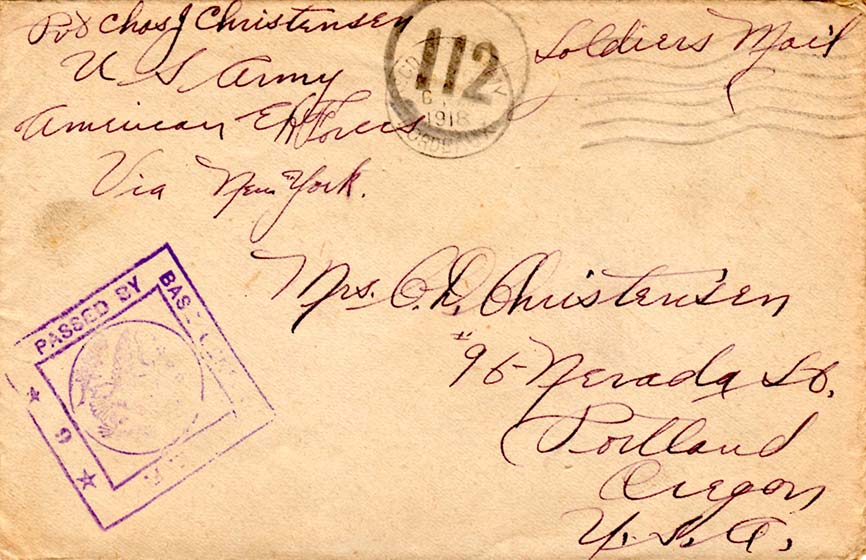 Pvt Chas J Christensen
U S Army
American Ex Forces
Via New York.
Soldiers Mail
112
1918
PASSED BY
BASE
★ 9 ★
Mrs. C. D. Christensen
#95 Nevada St.
Portland
Oregon
U. S. A.